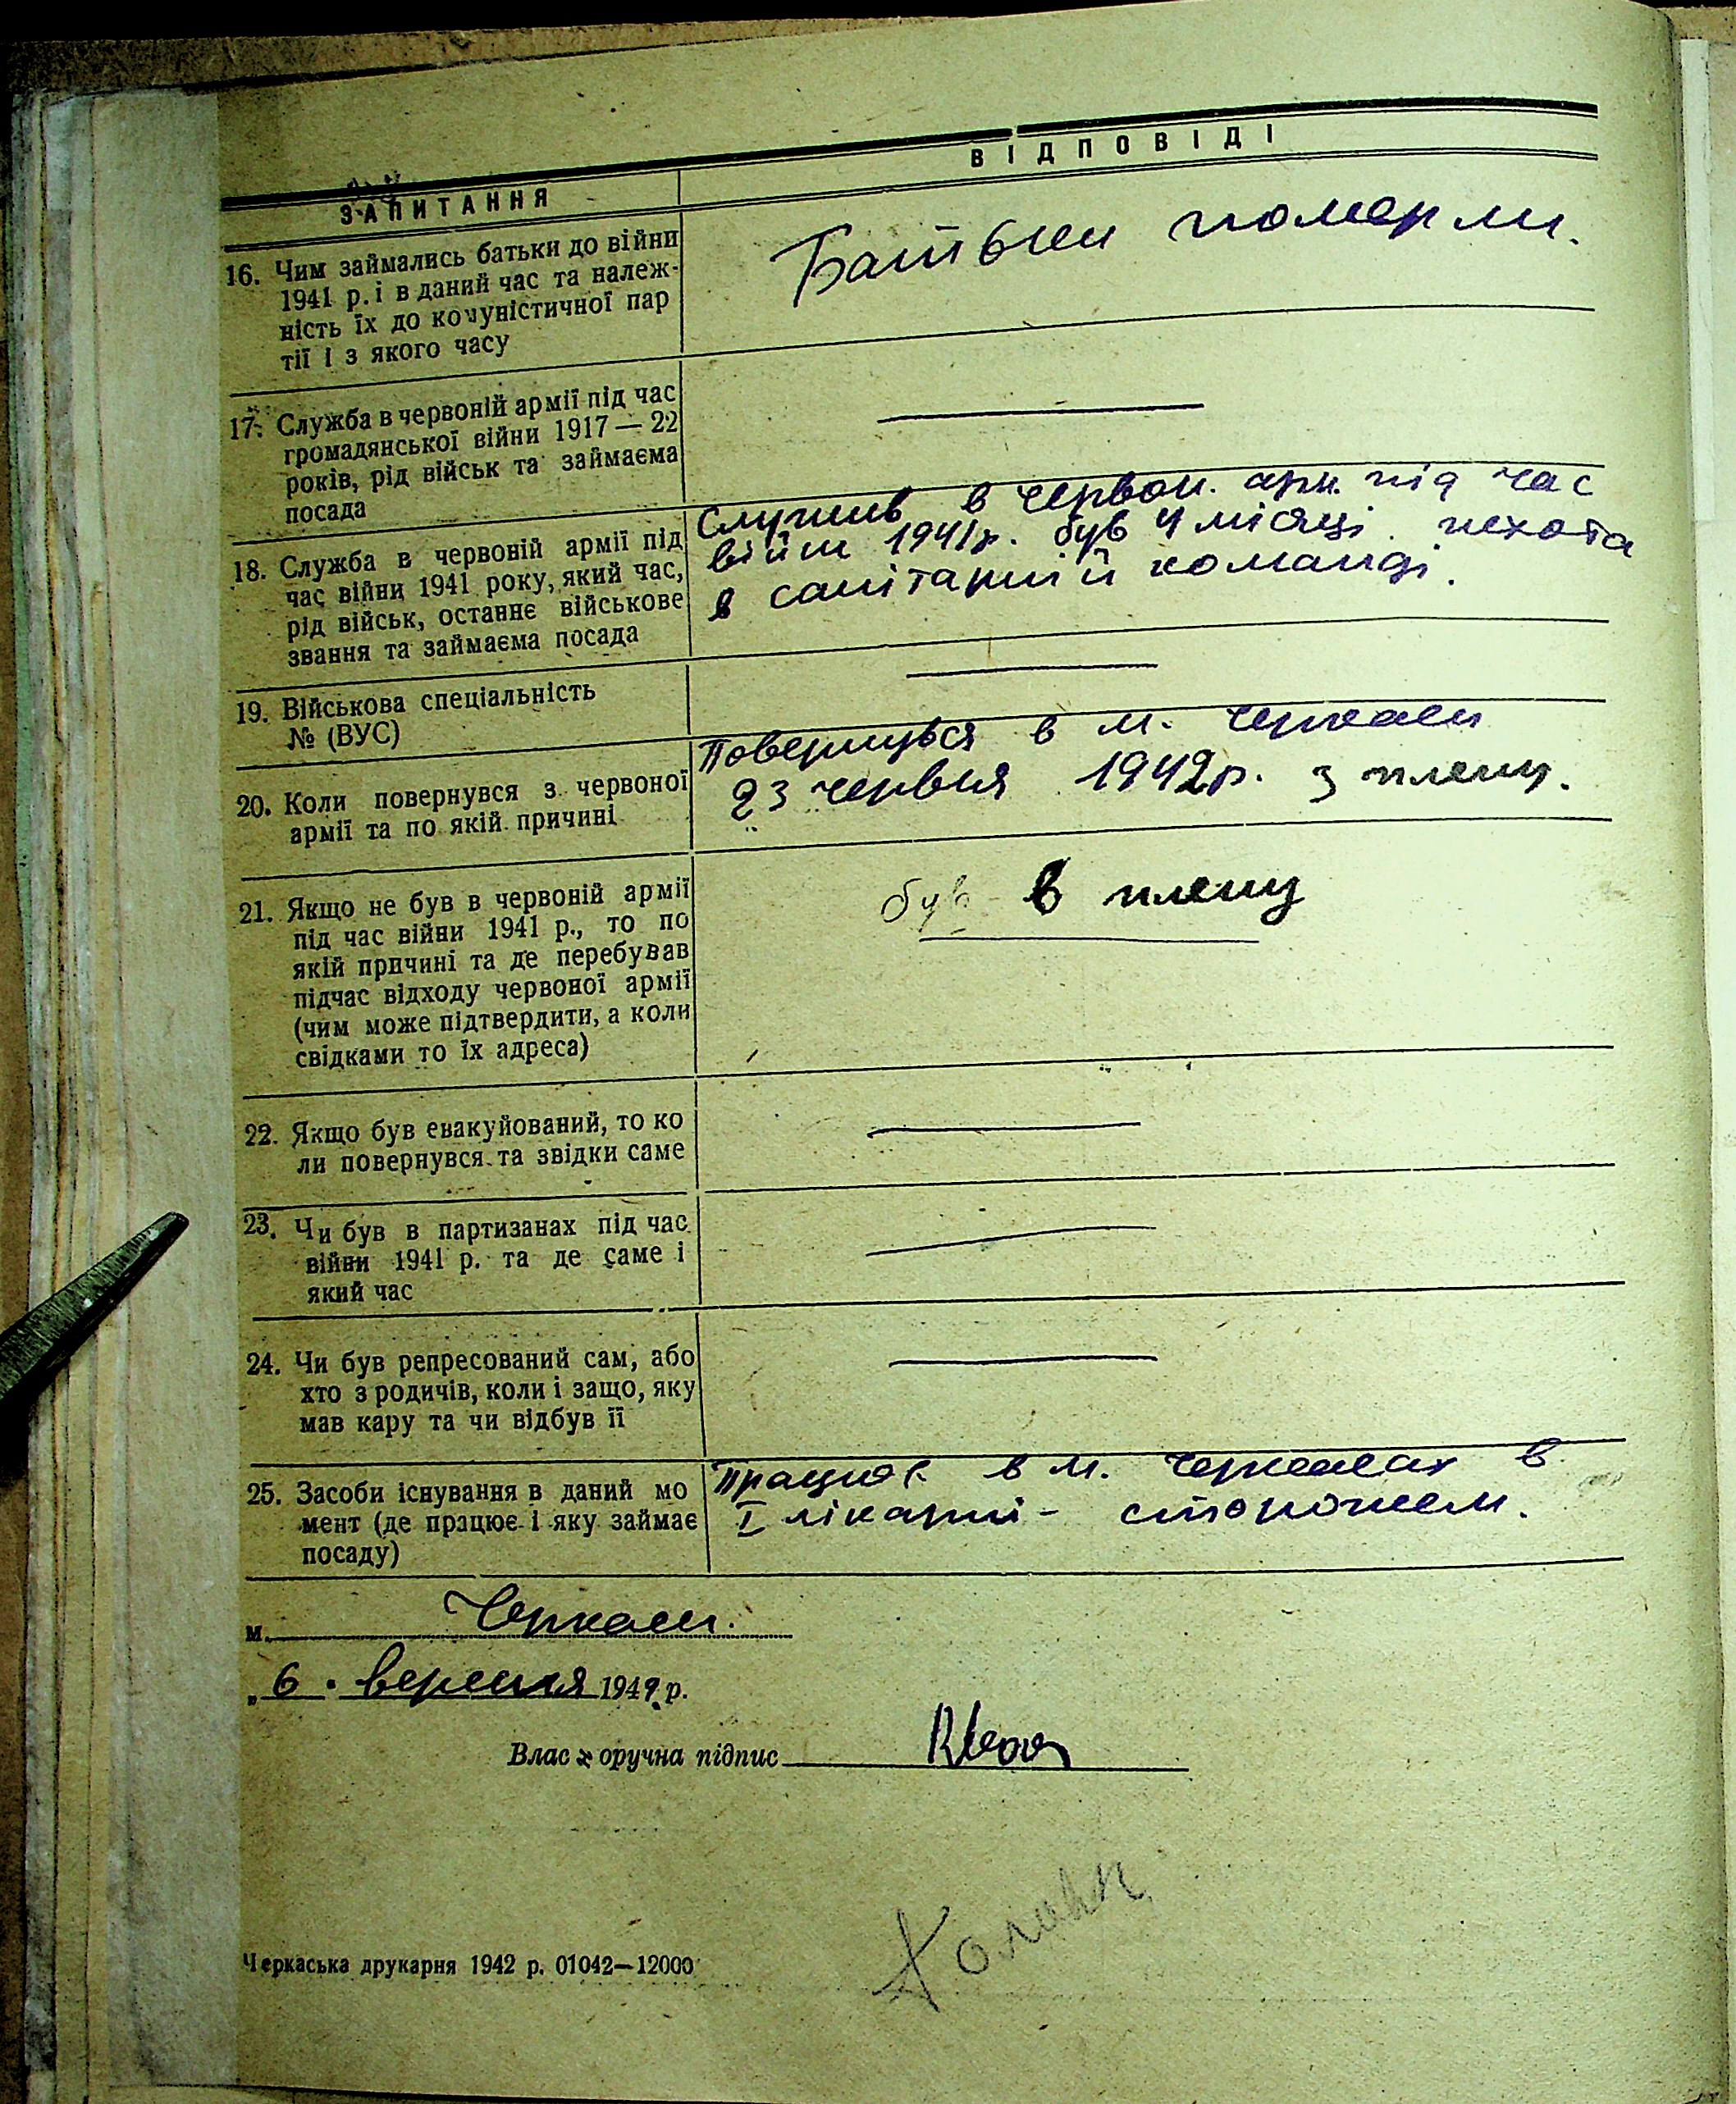 ЗАПИТАННЯ
ВІДПОВІДІ
16. Чим займались батьки до війни
1941 р. і в даний час та належ-
ність їх до комуністичної пар
тії і з якого часу
Батьки померли.
17. Служба в червоній армії під час
громадянської війни 1917 — 22
років, рід військ та займаєма
посада
18. Служба в червоній армії під
час війни 1941 року, який час,
рід військ, останнє військове
звання та займаєма посада
Служив в червон. арм. під час
війни 1941р. був 4 місяці. пехота
в санітарній команді.
19. Військова спеціальність
№ (ВУС)
20. Коли повернувся з червоної
армії та по якій причині
Повернувся в м. Черкаси
23 червня 1942р. з плену.
21. Якщо не був в червоній армії
під час війни 1941 р., то по
якій причині та де перебував
підчас відходу червоної армії
(чим може підтвердити, а коли
свідками то їх адреса)
був в плену
22. Якщо був евакуйований, то ко
ли повернувся та звідки саме
23. Чи був в партизанах під час
війни 1941 р. та де саме і
який час
24. Чи був репресований сам, або
хто з родичів, коли і защо, яку
мав кару та чи відбув її
25. Засоби існування в даний мо
мент (де працює і яку займає
посаду)
Працює в м. Черкасах в
I лікарні - сторожем.
м. Черкаси.
„6. вересня 1942 р.
Власноручна підпис
Черкаська друкарня 1942 р. 01042—12000